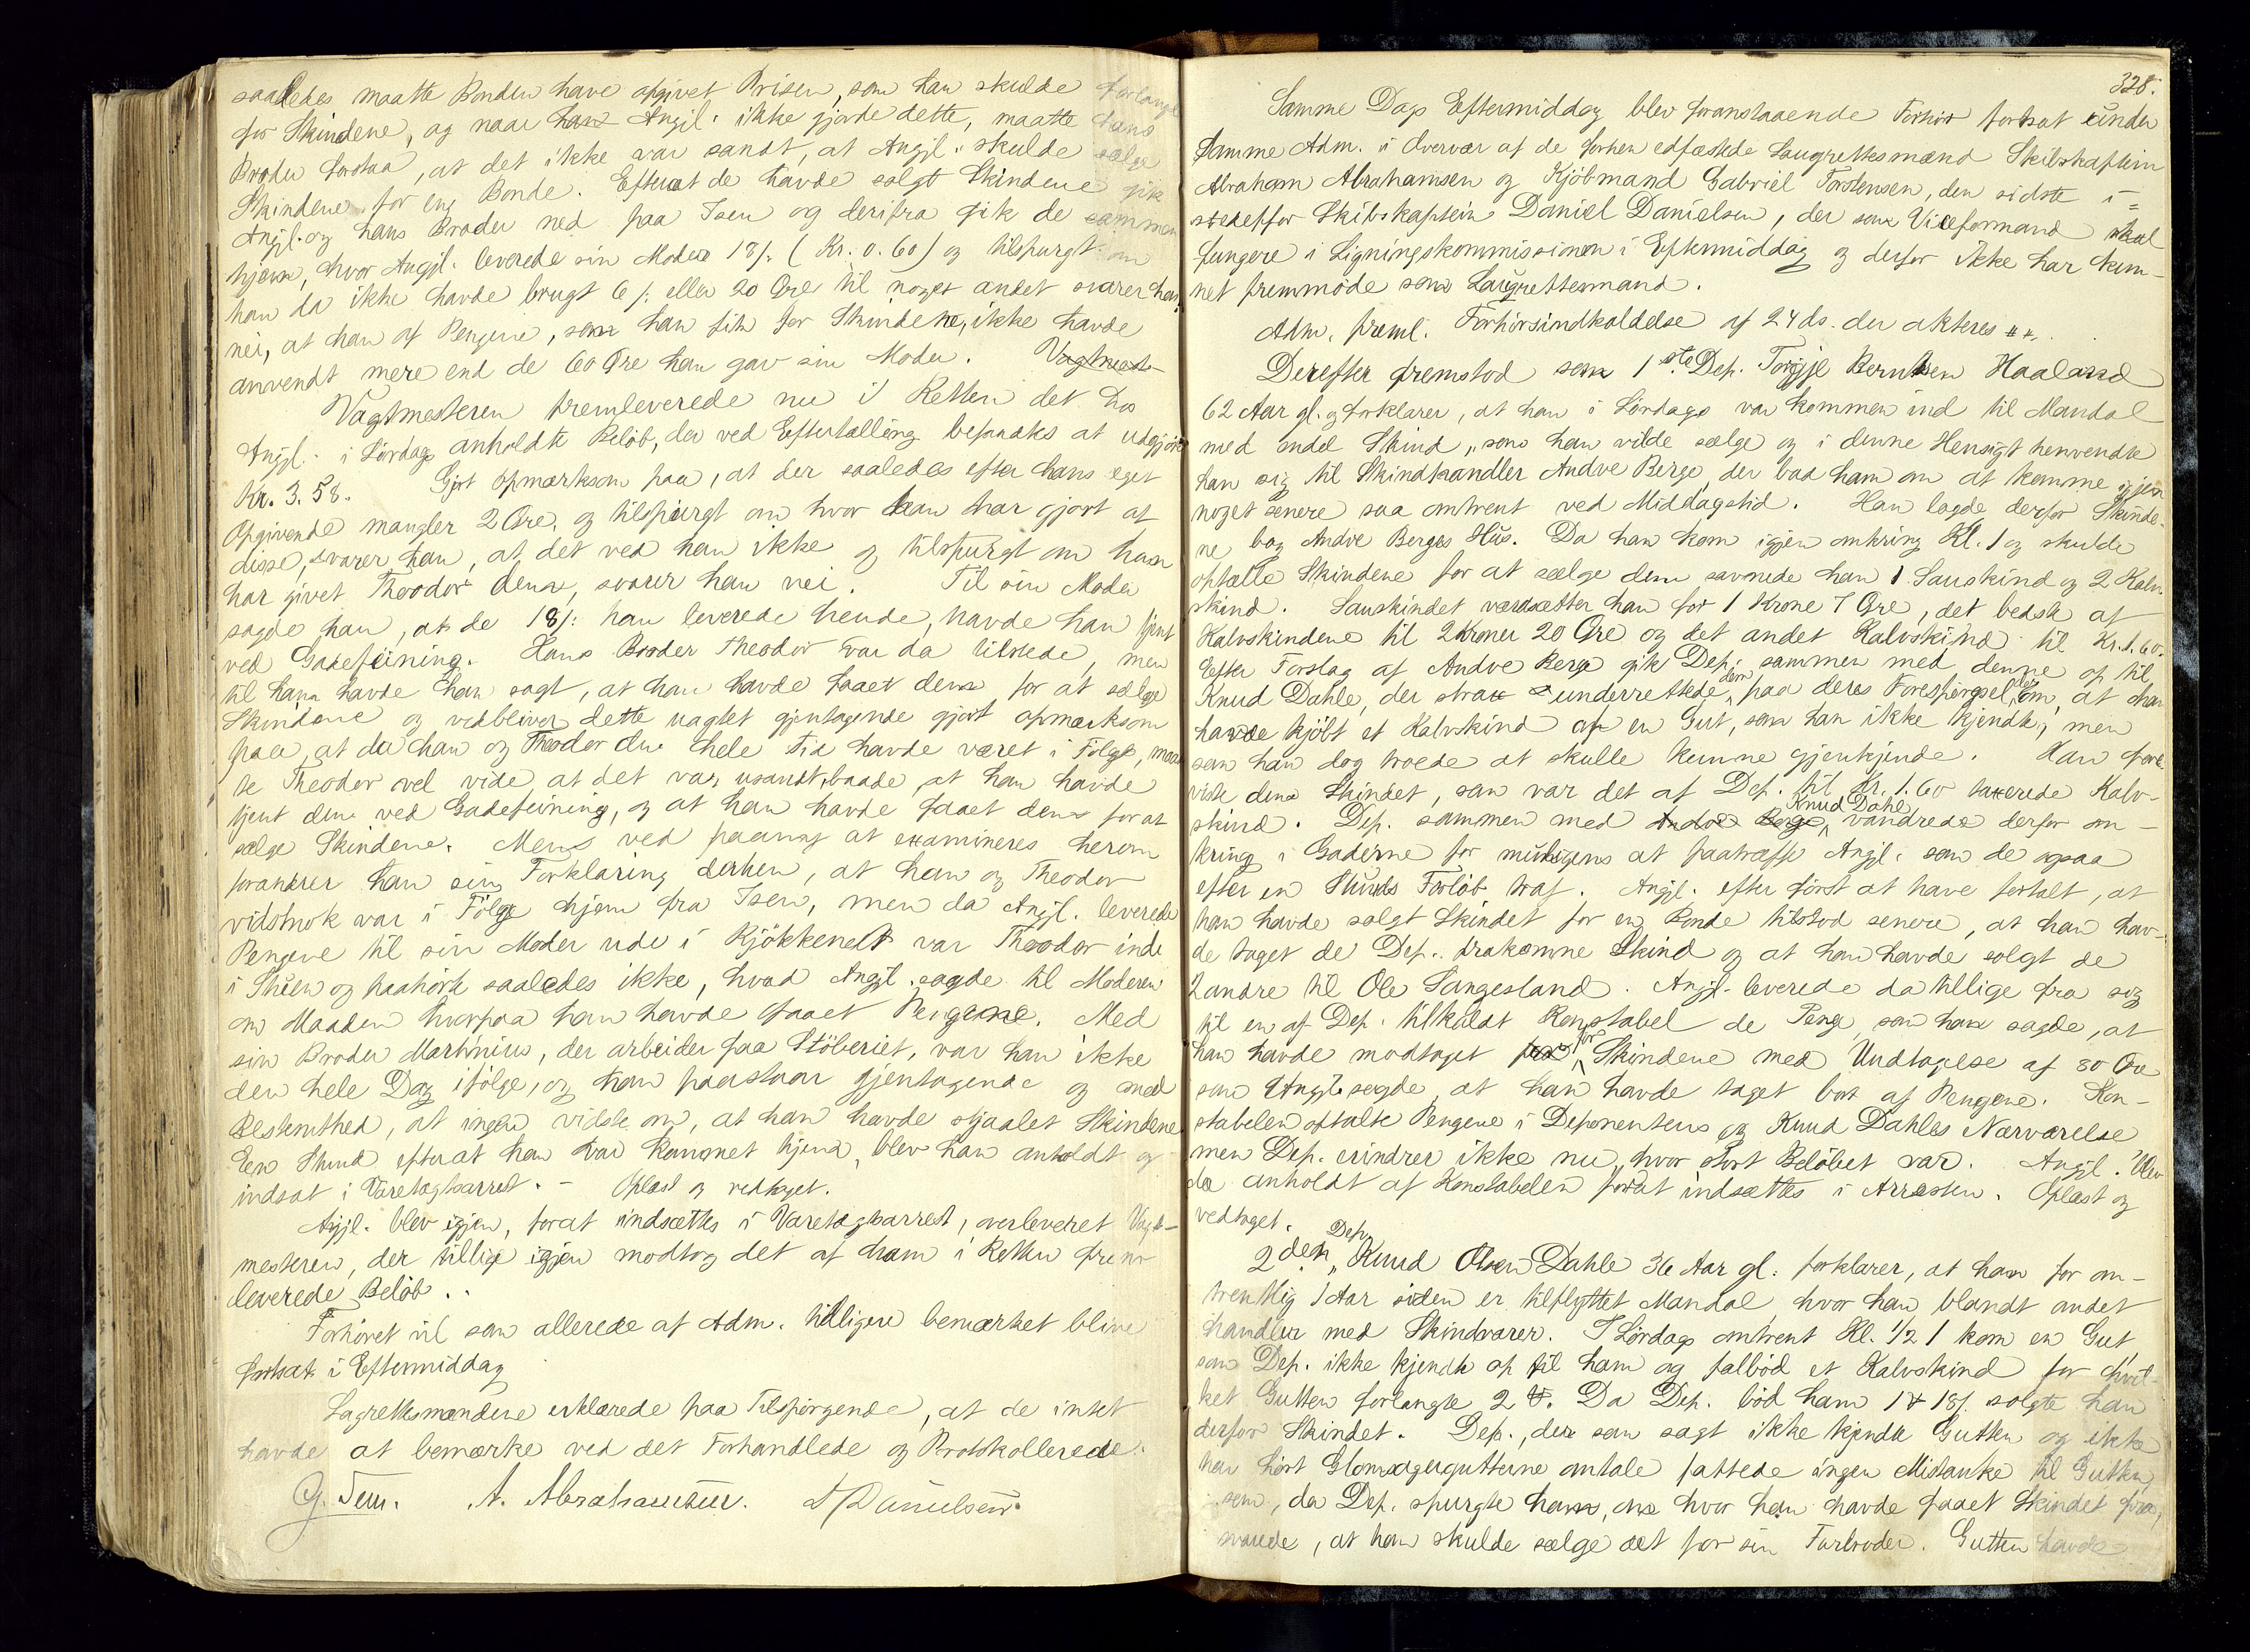 saaledes maatte Bonden have opgivet Prisen, som han skulde forlange
for Skindene, og naar han Angjl. ikke gjorde dette, maatte hans
Broder forstaa, at det ikke var sandt, at Angjl. skulde sælge
Skindene for en Bonde. Efterat de havde solgt Skindene gik
Angjl. og hans Broder ned paa Isen og derifra gik de sammen
hjem, hvor Angjl. leverede sin Moder 18 /: (Kr: 0.60) og tilspurgt om
han da ikke havde brugt 6 /: eller 20 Øre til noget andet svarer han
nei, at han af Pengene, som han fik for Skindene, ikke havde
anvendt mere end de 60 Øre han gav sin Moder. Vagtmest-
Vagtmesteren fremleverede nu i Retten det hos
Angjl. i Lørdags anholdte Beløb, der ved Eftertælling befandtes at udgjøre
Kr. 3.58. Gjort opmærksom paa, at der saaledes efter hans eget
Opgivende mangler 2 Øre, og tilspurgt om hvor han har gjort af
disse, svarer han, at det ved han ikke og tilspurgt om han
har givet Theodor dem, svarer han nei. Til sin Moder
sagde han, at de 18 /: han leverede hende, havde han tjent
ved Gadefeining. Hans Broder Theodor var da tilstede, men
til ham havde han sagt, at han havde faaet dem for at sælge
Skindene og vedbliver dette uagtet gjentagende gjort opmærksom
paa, at da han og Theodor den hele Tid havde været i Følge, maat
te Theodor vel vide, at det var usandt, baade at han havde
tjent dem ved Gadefeining, og at han havde faaet dem for at
sælge Skindene. Men ved paany at examineres herom
forandrer han sin Forklaring derhen, at han og Theodor
vidstnok var i Følge hjem fra Isen, men da Angjl. leverede
Pengene til sin Moder ude i Kjøkkenet var Theodor inde
i Stuen og paahørte saaledes ikke, hvad Angjl. sagde til Moderen
om Maaden hvorpaa han havde faaet Pengene. Med
sin Broder Martinius, der arbeider paa Støberiet, var han ikke
den hele Dag ifølge, og han paastaar gjentagende og med
Bestemthed, at ingen vidste om, at han havde stjaalet Skindene
Een Stund efterat han var kommet hjem, blev han anholdt og
indsat i Varetægtsarrest. - Oplæst og vedtaget.
Angjl. blev igjen, forat indsættes i Varetægtsarrest, overleveret Vagt-
mesteren, der tillige igjen modtog det af ham i Retten frem
leverede Beløb..
Forhøret vil som allerede af Adm. tidligere bemærket blive
fortsat i Eftermiddag
Lagrettesmændene erklærede paa Tilspørgende, at de intet
havde at bemærke ved det Forhandlede og Protokollerede.
A. Abrahamsen. D Danielsen.
328.
Samme Dags Eftermiddag blev foranstaaende Forhør fortsat under
samme Adm. i Overvær af de forhen edfæstede Laugrettesmænd Skibskaptein
Abraham Abrahamsen og Kjøbmand Gabriel Torstensen, den sidste i=
stedetfor Skibskaptein Daniel Danielsen, der som Viceformand skal
fungere i Ligningskommissionen i Eftermiddag og derfor ikke har kun-
net fremmøde som Laugrettesmand.
Adm. freml. Forhørsindkaldelse af 24 ds. der akteres
Derefter fremstod som 1ste Dep. Torgje Berntsen Haaland
62 Aar gl. og forklarer, at han i Lørdags var kommen ind til Mandal
med endel Skind, som han vilde sælge og i denne Hensigt henvendte
han sig til Skindhandler Andre Berge, der bad ham om at komme igjen
noget senere saa omtrent ved Middagstid. Han lagde derfor Skinde-
ne bag Andre Berges Hus. Da han kom igjen omkring Kl. 1 og skulde
optælle Skindene for at sælge dem savnede han 1 Sauskind og 2 Kalv
skind. Sauskindet værdsætter han for 1 Krone 7 Øre, det bedste af
Kalvskindene til 2 Kroner 20 Øre og det andet Kalvskind til Kr. 1.60.
Efter Forslag af Andre Berge gik Dep. sammen med denne op til
Knud Dahle, der strax underrettede dem, paa deres Forespørgsel, om, at han
havde kjøbt et Kalvskind af en Gut, som han ikke kjendte, men
som han dog troede at skulle kunne gjenkjende. Han fore
viste dem Skindet, som var det af Dep. til Kr. 1.60 taxerede Kalv-
skind. Dep. sammen med Andre Berge Knud Dahle vandrede derfor om-
kring i Gaderne for muligens at paatræffe Angjl. som de ogsaa
efter en Stunds Forløb traf. Angjl. efter først at have fortalt, at
han havde solgt Skindet for en Bonde tilstod senere, at han hav-
de taget de Dep. frakomne Skind og at han havde solgt de
2 andre til Ole Sangesland. Angjl. leverede da tillige fra sig
til en af Dep. tilkaldt Konstabel de Penge, som han sagde, at
han havde modtaget for Skindene med Undtagelse af 80 Øre
som Angjl. sagde at han havde taget bort af Pengene. Kon-
stabelen optalte Pengene i Deponentens og Knud Dahles Nærværelse
men Dep. erindrer ikke nu, hvor stort Beløbet var. Angjl. blev
da anholdt af Konstabelen forat indsættes i Arresten. Oplæst og
vedtaget.
2den Dep. Knud Olsen Dahle 36 Aar gl. forklarer, at han for om-
trentlig 1 Aar siden er tilflyttet Mandal hvor han blandt andet
handler med Skindvarer. I Lørdags omtrent Kl. 1/2 1 kom en Gut
som Dep. ikke kjendte op til ham og falbød et Kalvskind for hvil-
ket Gutten forlangte 2 . Da Dep. bød ham 1 18 /: solgte han
derfor Skindet. Dep., der som sagt ikke kjendte Gutten og ikke
har hørt Glomsagergutterne omtale fattede ingen Mistanke til Gutten,
som, da Dep. spurgte ham, om hvor han havde faaet Skindet fra,
svarede, at han skulde sælge det for sin Farbroder. Gutten havde